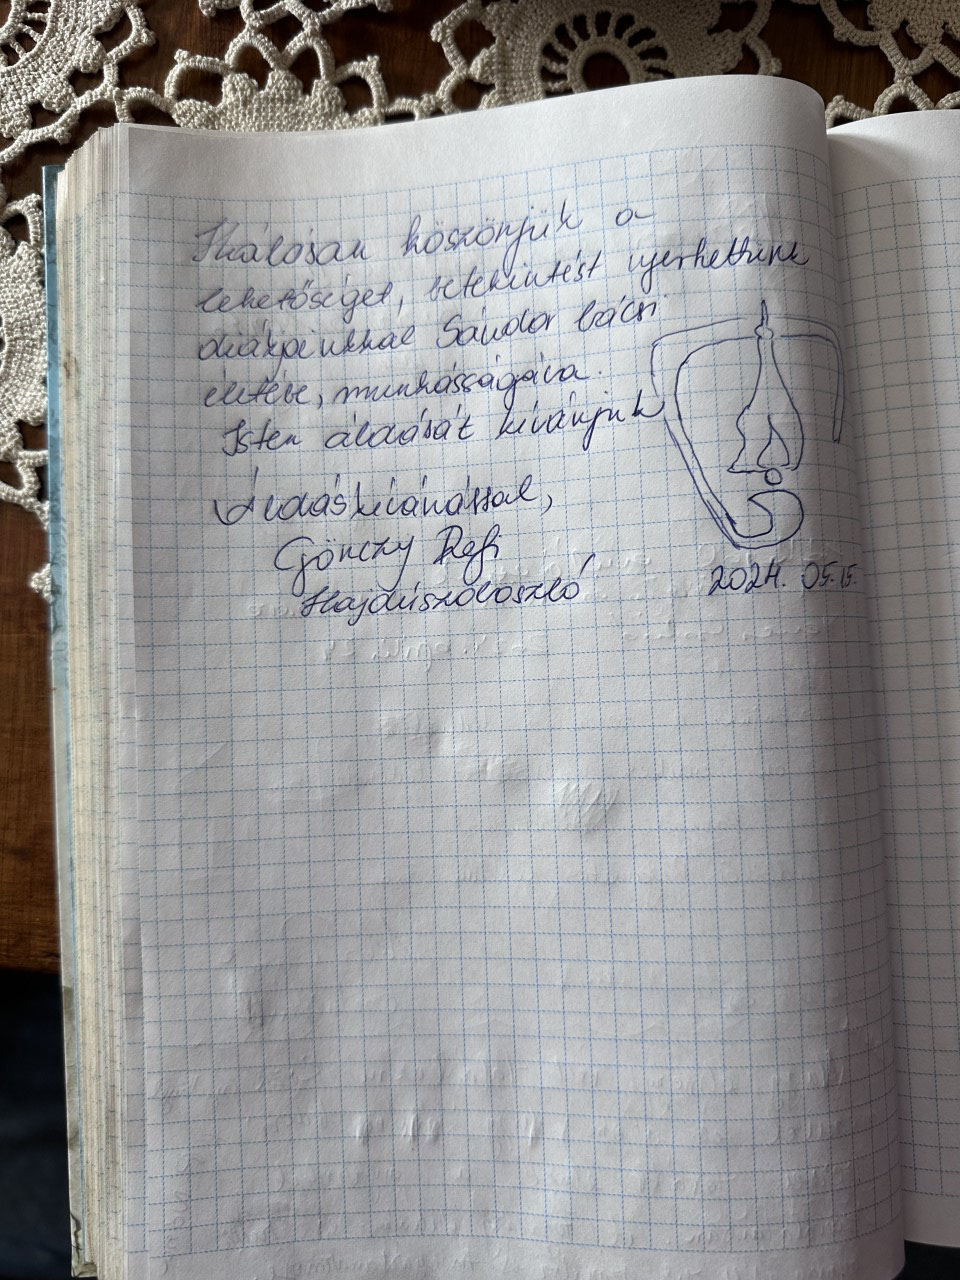 Hálásan köszönjük a
lehetőséget, betekintést nyerhettünk
diákjainkkal Sándor bácsi
életébe, munkásságába.
Isten áldását kívánjuk
Áldáskívánással,
Gönczy Refi
Hajdúszoboszló
2024. 05. 15.